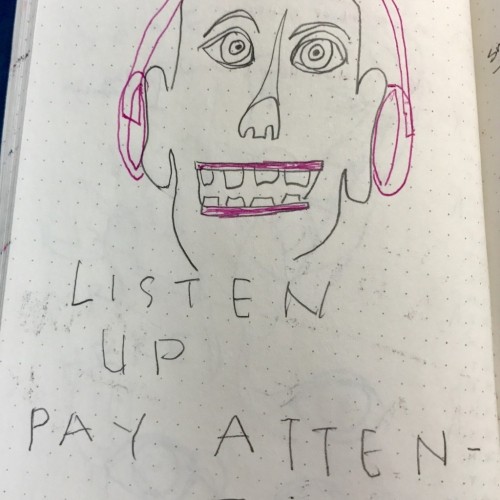 LISTEN
UP
PAY ATTEN-